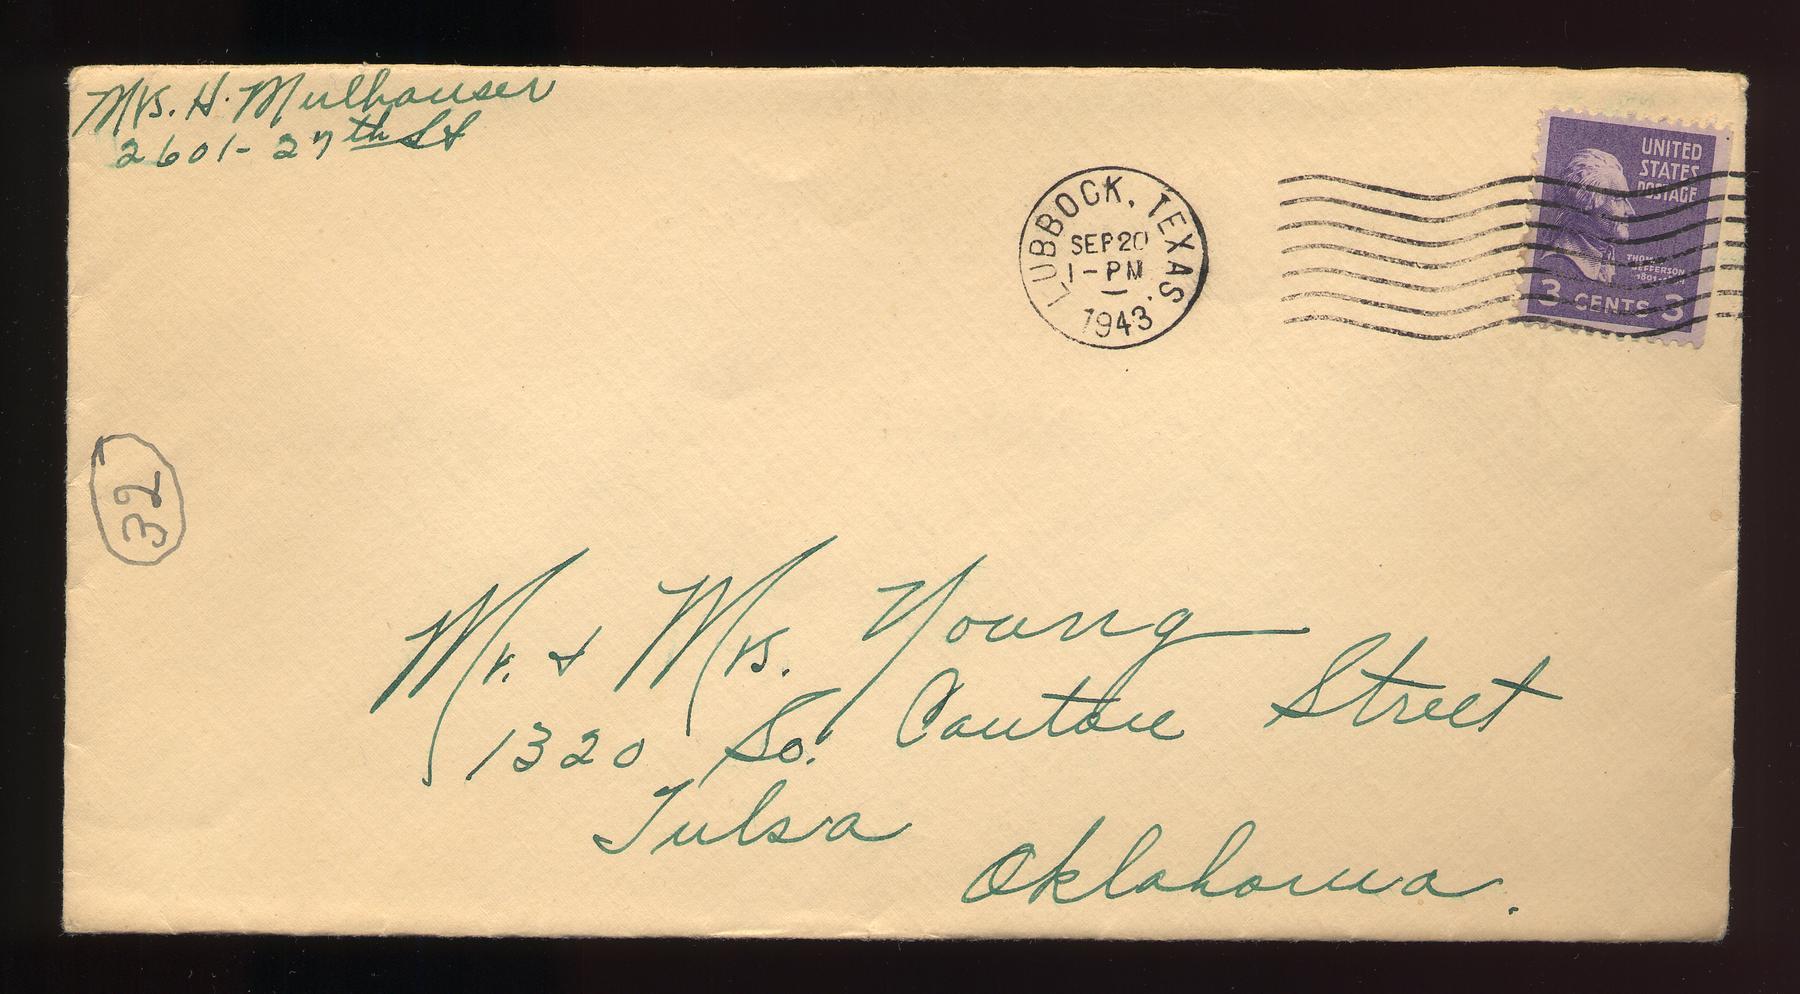 Mrs. H. Mulhauser
2601 - 27th St
LUBBOCK, TEXAS.
SEP 20
1 - PM
1943
UNITED
STATES
POSTAGE
JEFFERSON
3 CENTS 3
32
Mr. & Mrs. Young
1320 So. Canton Street
Tulsa
Oklahoma.